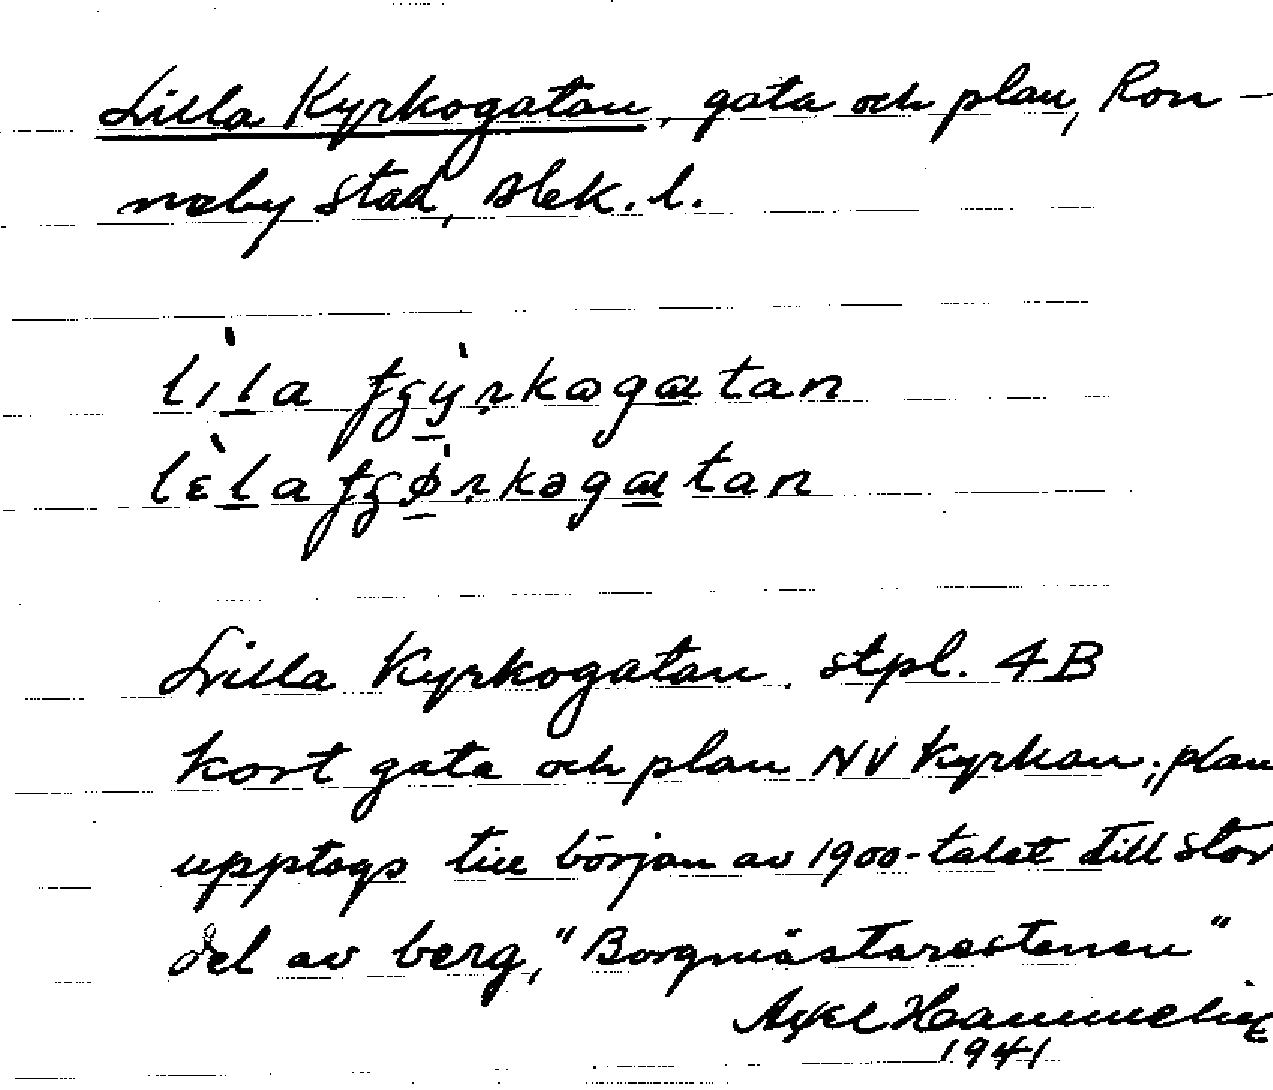 Lilla Kyrkogatan, gata och plan, Ron-
neby stad, Blek. l.
Lilla Kyrkogatan. stpl. 4B
kort gata och plan NV kyrkan; plan
upptogs till början av 1900-talet till stor
del av berg, "Borgmästarestenen"
Axel
1941